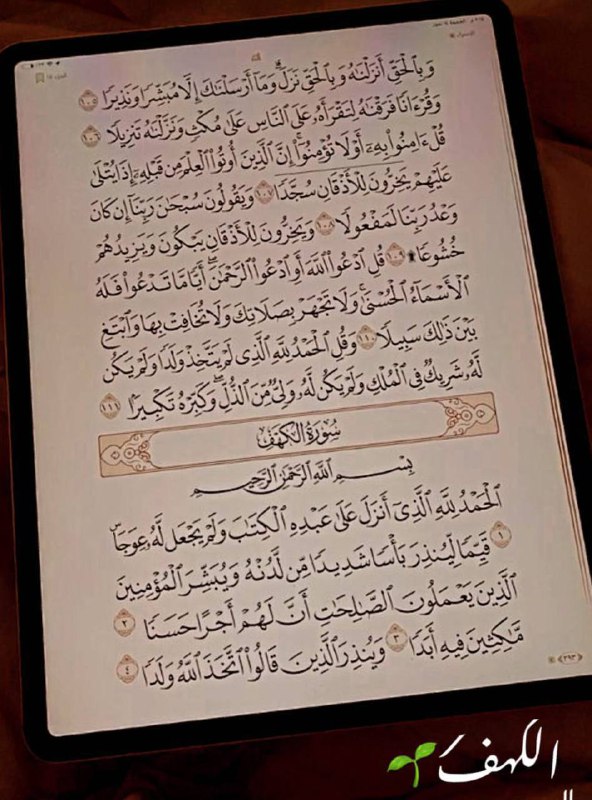 الإسراء
الجزء ١٥
وَبِٱلْحَقِّ أَنزَلْنَٰهُ وَبِٱلْحَقِّ نَزَلَ ۗ وَمَآ أَرْسَلْنَٰكَ إِلَّا مُبَشِّرًا وَنَذِيرًا ١٠٥
وَقُرْءَانًا فَرَقْنَٰهُ لِتَقْرَأَهُۥ عَلَى ٱلنَّاسِ عَلَىٰ مُكْثٍ وَنَزَّلْنَٰهُ تَنزِيلًا ١٠٦
قُلْ ءَامِنُوا۟ بِهِۦٓ أَوْ لَا تُؤْمِنُوٓا۟ ۚ إِنَّ ٱلَّذِينَ أُوتُوا۟ ٱلْعِلْمَ مِن قَبْلِهِۦٓ إِذَا يُتْلَىٰ
عَلَيْهِمْ يَخِرُّونَ لِلْأَذْقَانِ سُجَّدًا ١٠٧ وَيَقُولُونَ سُبْحَٰنَ رَبِّنَآ إِن كَانَ
وَعْدُ رَبِّنَا لَمَفْعُولًا ١٠٨ وَيَخِرُّونَ لِلْأَذْقَانِ يَبْكُونَ وَيَزِيدُهُمْ
خُشُوعًا ۩ ١٠٩ قُلِ ٱدْعُوا۟ ٱللَّهَ أَوِ ٱدْعُوا۟ ٱلرَّحْمَٰنَ ۖ أَيًّا مَّا تَدْعُوا۟ فَلَهُ
ٱلْأَسْمَآءُ ٱلْحُسْنَىٰ ۚ وَلَا تَجْهَرْ بِصَلَاتِكَ وَلَا تُخَافِتْ بِهَا وَٱبْتَغِ
بَيْنَ ذَٰلِكَ سَبِيلًا ١١٠ وَقُلِ ٱلْحَمْدُ لِلَّهِ ٱلَّذِى لَمْ يَتَّخِذْ وَلَدًا وَلَمْ يَكُن
لَّهُۥ شَرِيكٌ فِى ٱلْمُلْكِ وَلَمْ يَكُن لَّهُۥ وَلِىٌّ مِّنَ ٱلذُّلِّ ۖ وَكَبِّرْهُ تَكْبِيرًۢا ١١١
سُورَةُ الكَهْفِ
بِسْمِ ٱللَّهِ ٱلرَّحْمَٰنِ ٱلرَّحِيمِ
ٱلْحَمْدُ لِلَّهِ ٱلَّذِىٓ أَنزَلَ عَلَىٰ عَبْدِهِ ٱلْكِتَٰبَ وَلَمْ يَجْعَل لَّهُۥ عِوَجَاۜ ١
قَيِّمًا لِّيُنذِرَ بَأْسًا شَدِيدًا مِّن لَّدُنْهُ وَيُبَشِّرَ ٱلْمُؤْمِنِينَ
ٱلَّذِينَ يَعْمَلُونَ ٱلصَّٰلِحَٰتِ أَنَّ لَهُمْ أَجْرًا حَسَنًا ٢
مَّٰكِثِينَ فِيهِ أَبَدًا ٣ وَيُنذِرَ ٱلَّذِينَ قَالُوا۟ ٱتَّخَذَ ٱللَّهُ وَلَدًا ٤
٢٩٣
الكهف